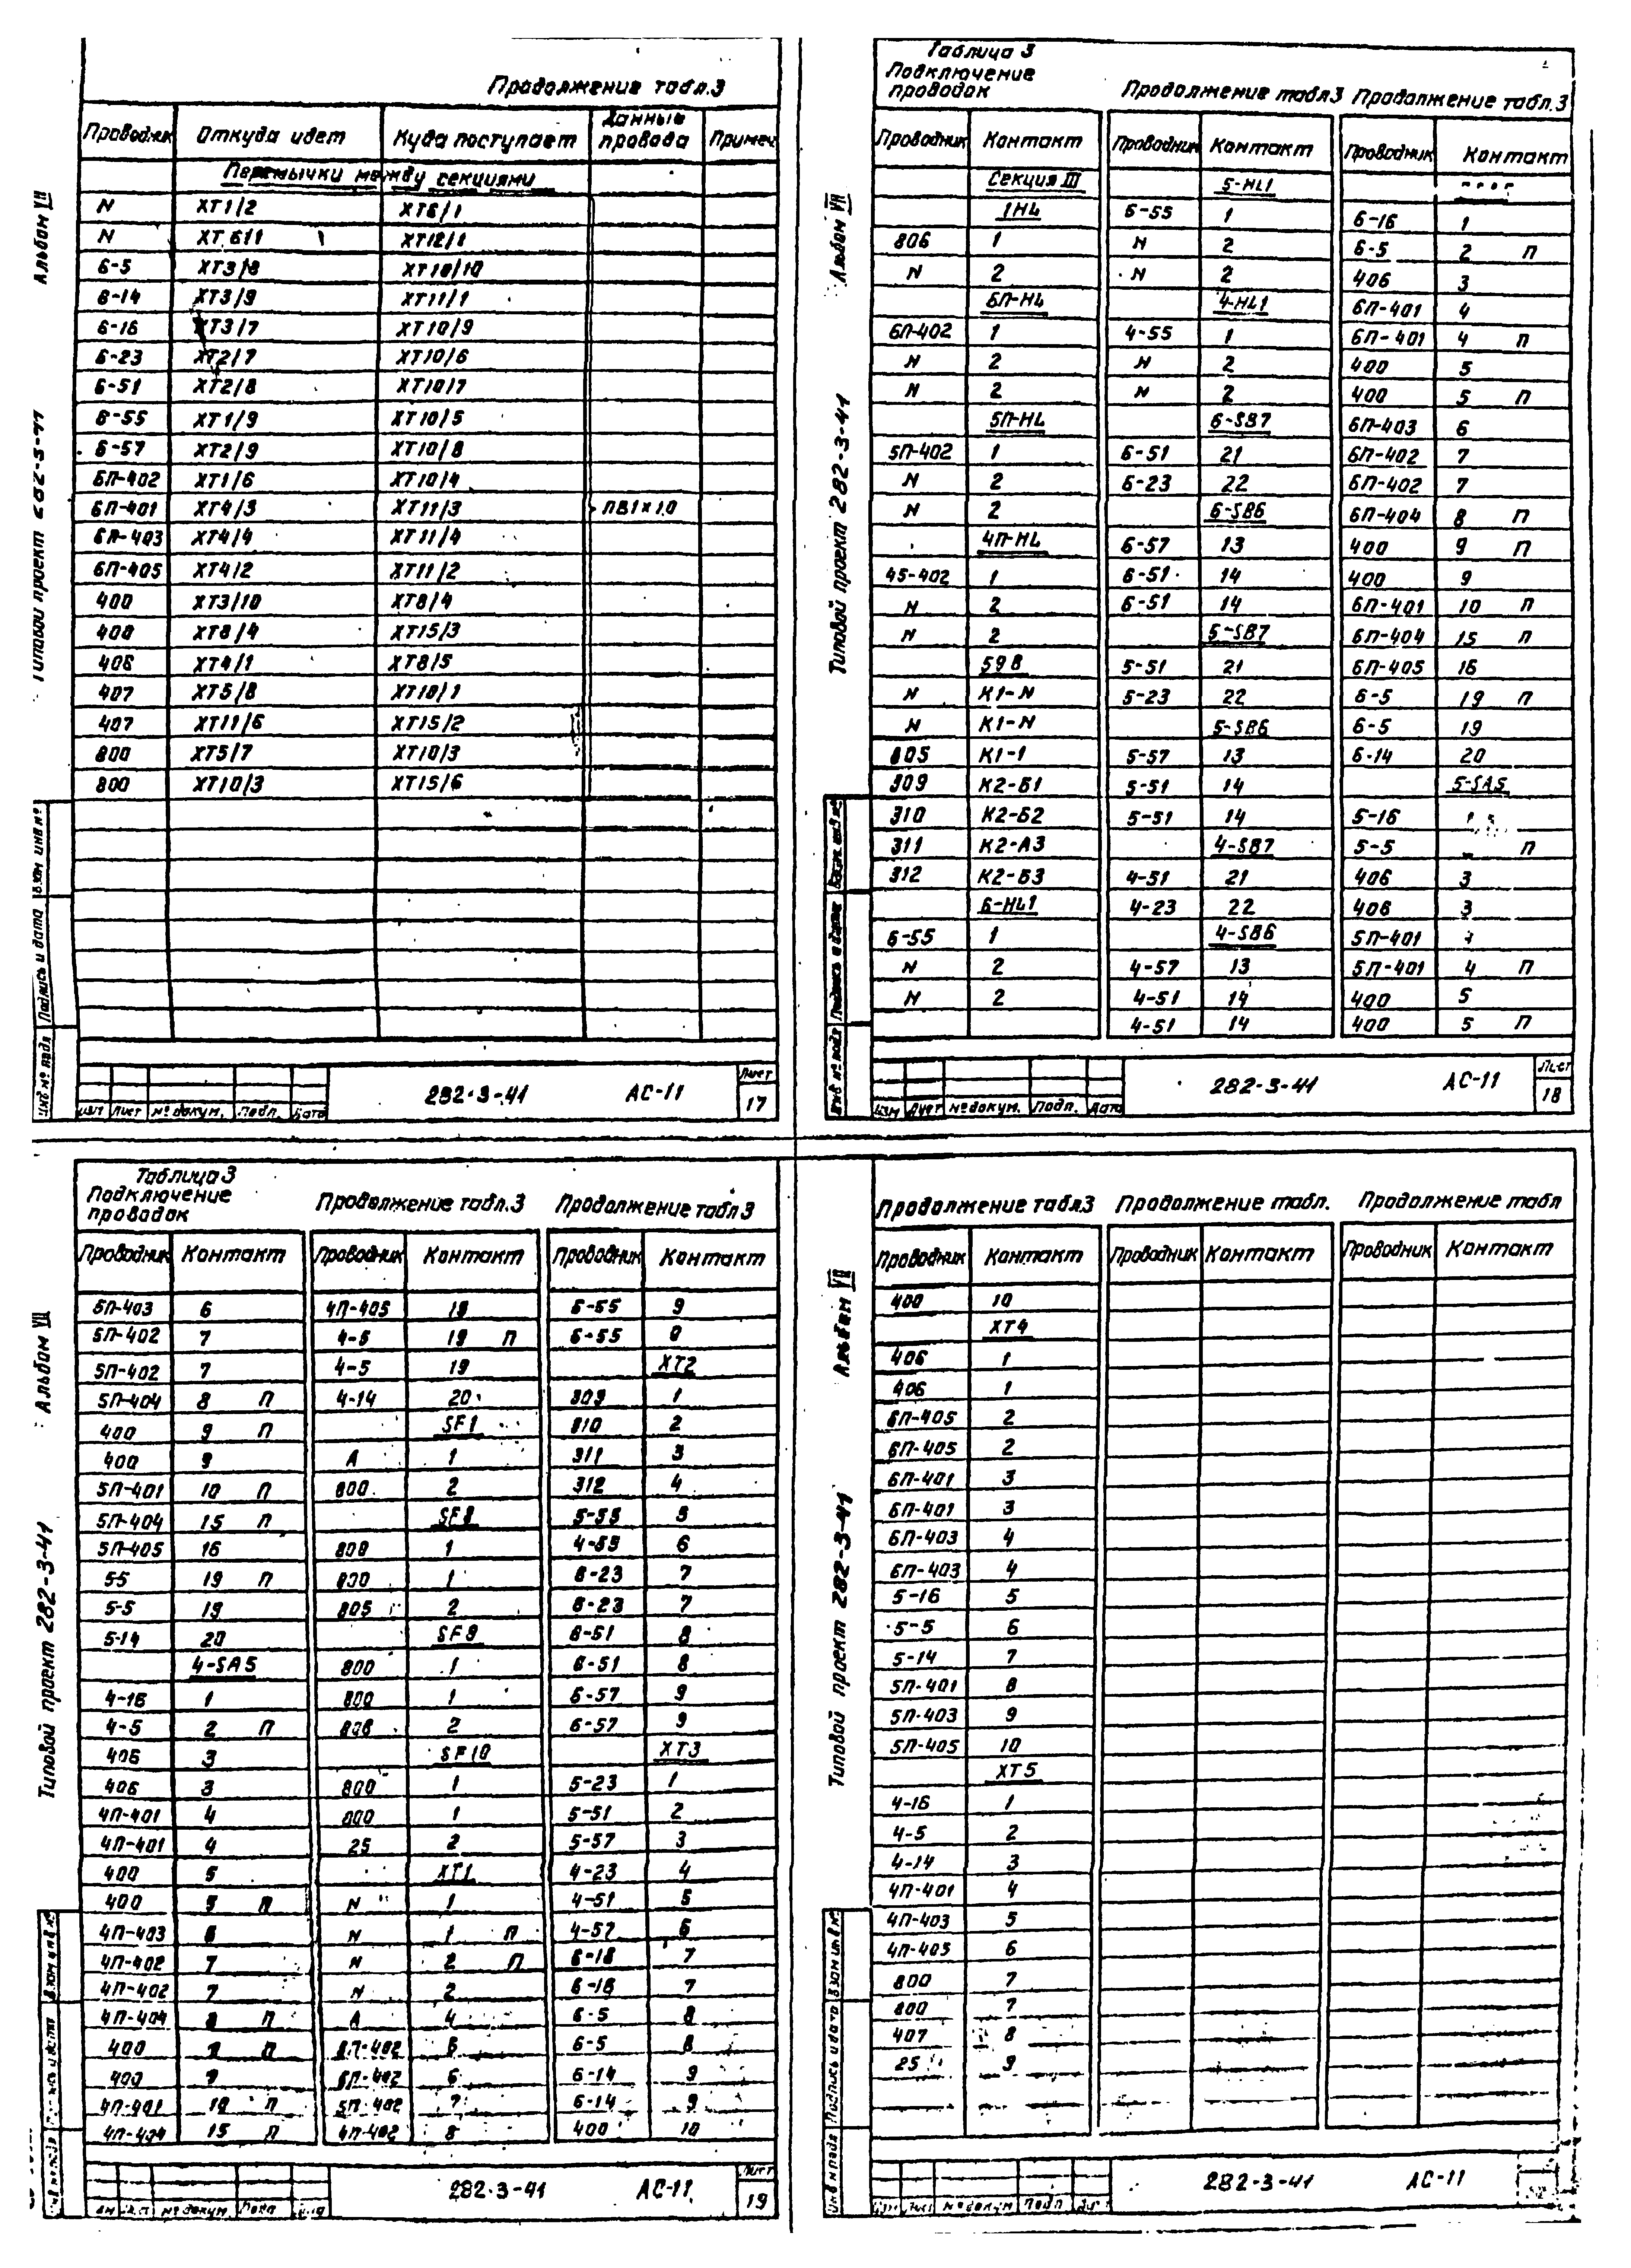 Продолжение табл.3
Проводник Откуда идет Куда поступает Данные провода Примеч
Перемычки между секциями
N ХТ1/2 ХТ6/1
N ХТ6/1 ХТ12/1
6-5 ХТ3/8 ХТ10/10
6-14 ХТ3/9 ХТ11/1
6-16 ХТ3/7 ХТ10/9
6-23 ХТ2/7 ХТ10/6
6-51 ХТ2/8 ХТ10/7
6-55 ХТ1/9 ХТ10/5
6-57 ХТ2/9 ХТ10/8
6П-402 ХТ1/6 ХТ10/4
6П-401 ХТ4/3 ХТ11/3 ПВ1×1.0
6П-403 ХТ4/4 ХТ11/4
6П-405 ХТ4/2 ХТ11/2
400 ХТ3/10 ХТ8/4
400 ХТ8/4 ХТ15/3
406 ХТ4/1 ХТ8/5
407 ХТ5/8 ХТ10/1
407 ХТ11/6 ХТ15/2
800 ХТ5/7 ХТ10/3
800 ХТ10/3 ХТ15/6
Альбом VII
Типовой проект 282-3-41
Инв № подл Подпись и дата Взам инв №
Изм Лист № докум. Подп. Дата
282-3-41 АС-11
Лист
17
Таблица 3
Подключение
проводок
Продолжение табл3 Продолжение табл.3
Проводник Контакт Проводник Контакт Проводник Контакт
Секция III 5-HL1
1HL 6-55 1 6-16 1
806 1 N 2 6-5 2 П
N 2 N 2 406 3
6П-HL 4-HL1 6П-401 4
6П-402 1 4-55 1 6П-401 4 П
N 2 N 2 400 5
N 2 N 2 400 5 П
5П-HL 6-SB7 6П-403 6
5П-402 1 6-51 21 6П-402 7
N 2 6-23 22 6П-402 7
N 2 6-SB6 6П-404 8 П
4П-HL 6-57 13 400 9 П
45-402 1 6-51 14 400 9
N 2 6-51 14 6П-401 10 П
N 2 5-SB7 6П-404 15 П
59В 5-51 21 6П-405 16
N К1-N 5-23 22 6-5 19 П
N К1-N 5-SB6 6-5 19
805 К1-1 5-57 13 6-14 20
309 К2-Б1 5-51 14 5-SA5
310 К2-Б2 5-51 14 5-16
311 К2-А3 4-SB7 5-5 П
312 К2-Б3 4-51 21 406 3
6-HL1 4-23 22 406 3
6-55 1 4-SB6 5П-401
N 2 4-57 13 5П-401 4 П
N 2 4-51 14 400 5
4-51 14 400 5 П
Альбом VII
Типовой проект 282-3-41
Инв № подл Подпись и дата Взам. инв №
Изм Лист № докум. Подп. Дата
282-3-41 АС-11
Лист
18
Таблица 3
Подключение
проводок
Продолжение табл.3 Продолжение табл 3
Проводник Контакт Проводник Контакт Проводник Контакт
5П-403 6 4П-405 16 6-55 9
5П-402 7 4-5 19 П 6-55 9
5П-402 7 4-5 19 ХТ2
5П-404 8 П 4-14 20 309 1
400 9 П SF1 310 2
400 9 А 1 311 3
5П-401 10 П 800 2 312 4
5П-404 15 П SF8 5-55 5
5П-405 16 800 1 4-55 6
5-5 19 П 800 1 6-23 7
5-5 19 805 2 6-23 7
5-14 20 SF9 6-51 8
4-SA5 800 1 6-51 8
4-16 1 800 1 6-57 9
4-5 2 П 806 2 6-57 9
406 3 SF10 ХТ3
406 3 800 1 5-23 1
4П-401 4 800 1 5-51 2
4П-401 4 25 2 5-57 3
400 5 ХТ1 4-23 4
400 5 П N 1 4-51 5
4П-403 6 N 1 П 4-57 6
4П-402 7 N 2 П 6-16 7
4П-402 7 N 2 6-16 7
4П-404 8 П А 4 6-5 8
400 9 П 6П-402 6 6-5 8
400 9 6П-402 6 6-14 9
4П-401 10 П 5П-402 7 6-14 9
4П-404 15 П 4П-402 8 400 10
Альбом VII
Типовой проект 282-3-41
282-3-41 АС-11
Лист
19
Продолжение табл3 Продолжение табл. Продолжение табл
Проводник Контакт Проводник Контакт Проводник Контакт
400 10
ХТ4
406 1
406 1
6П-405 2
6П-405 2
6П-401 3
6П-401 3
6П-403 4
6П-403 4
5-16 5
5-5 6
5-14 7
5П-401 8
5П-403 9
5П-405 10
ХТ5
4-16 1
4-5 2
4-14 3
4П-401 4
4П-403 5
4П-405 6
800 7
800 7
407 8
25 9
Альбом VII
Типовой проект 282-3-41
Инв № подл Подпись и дата Взам инв №
282-3-41 АС-11